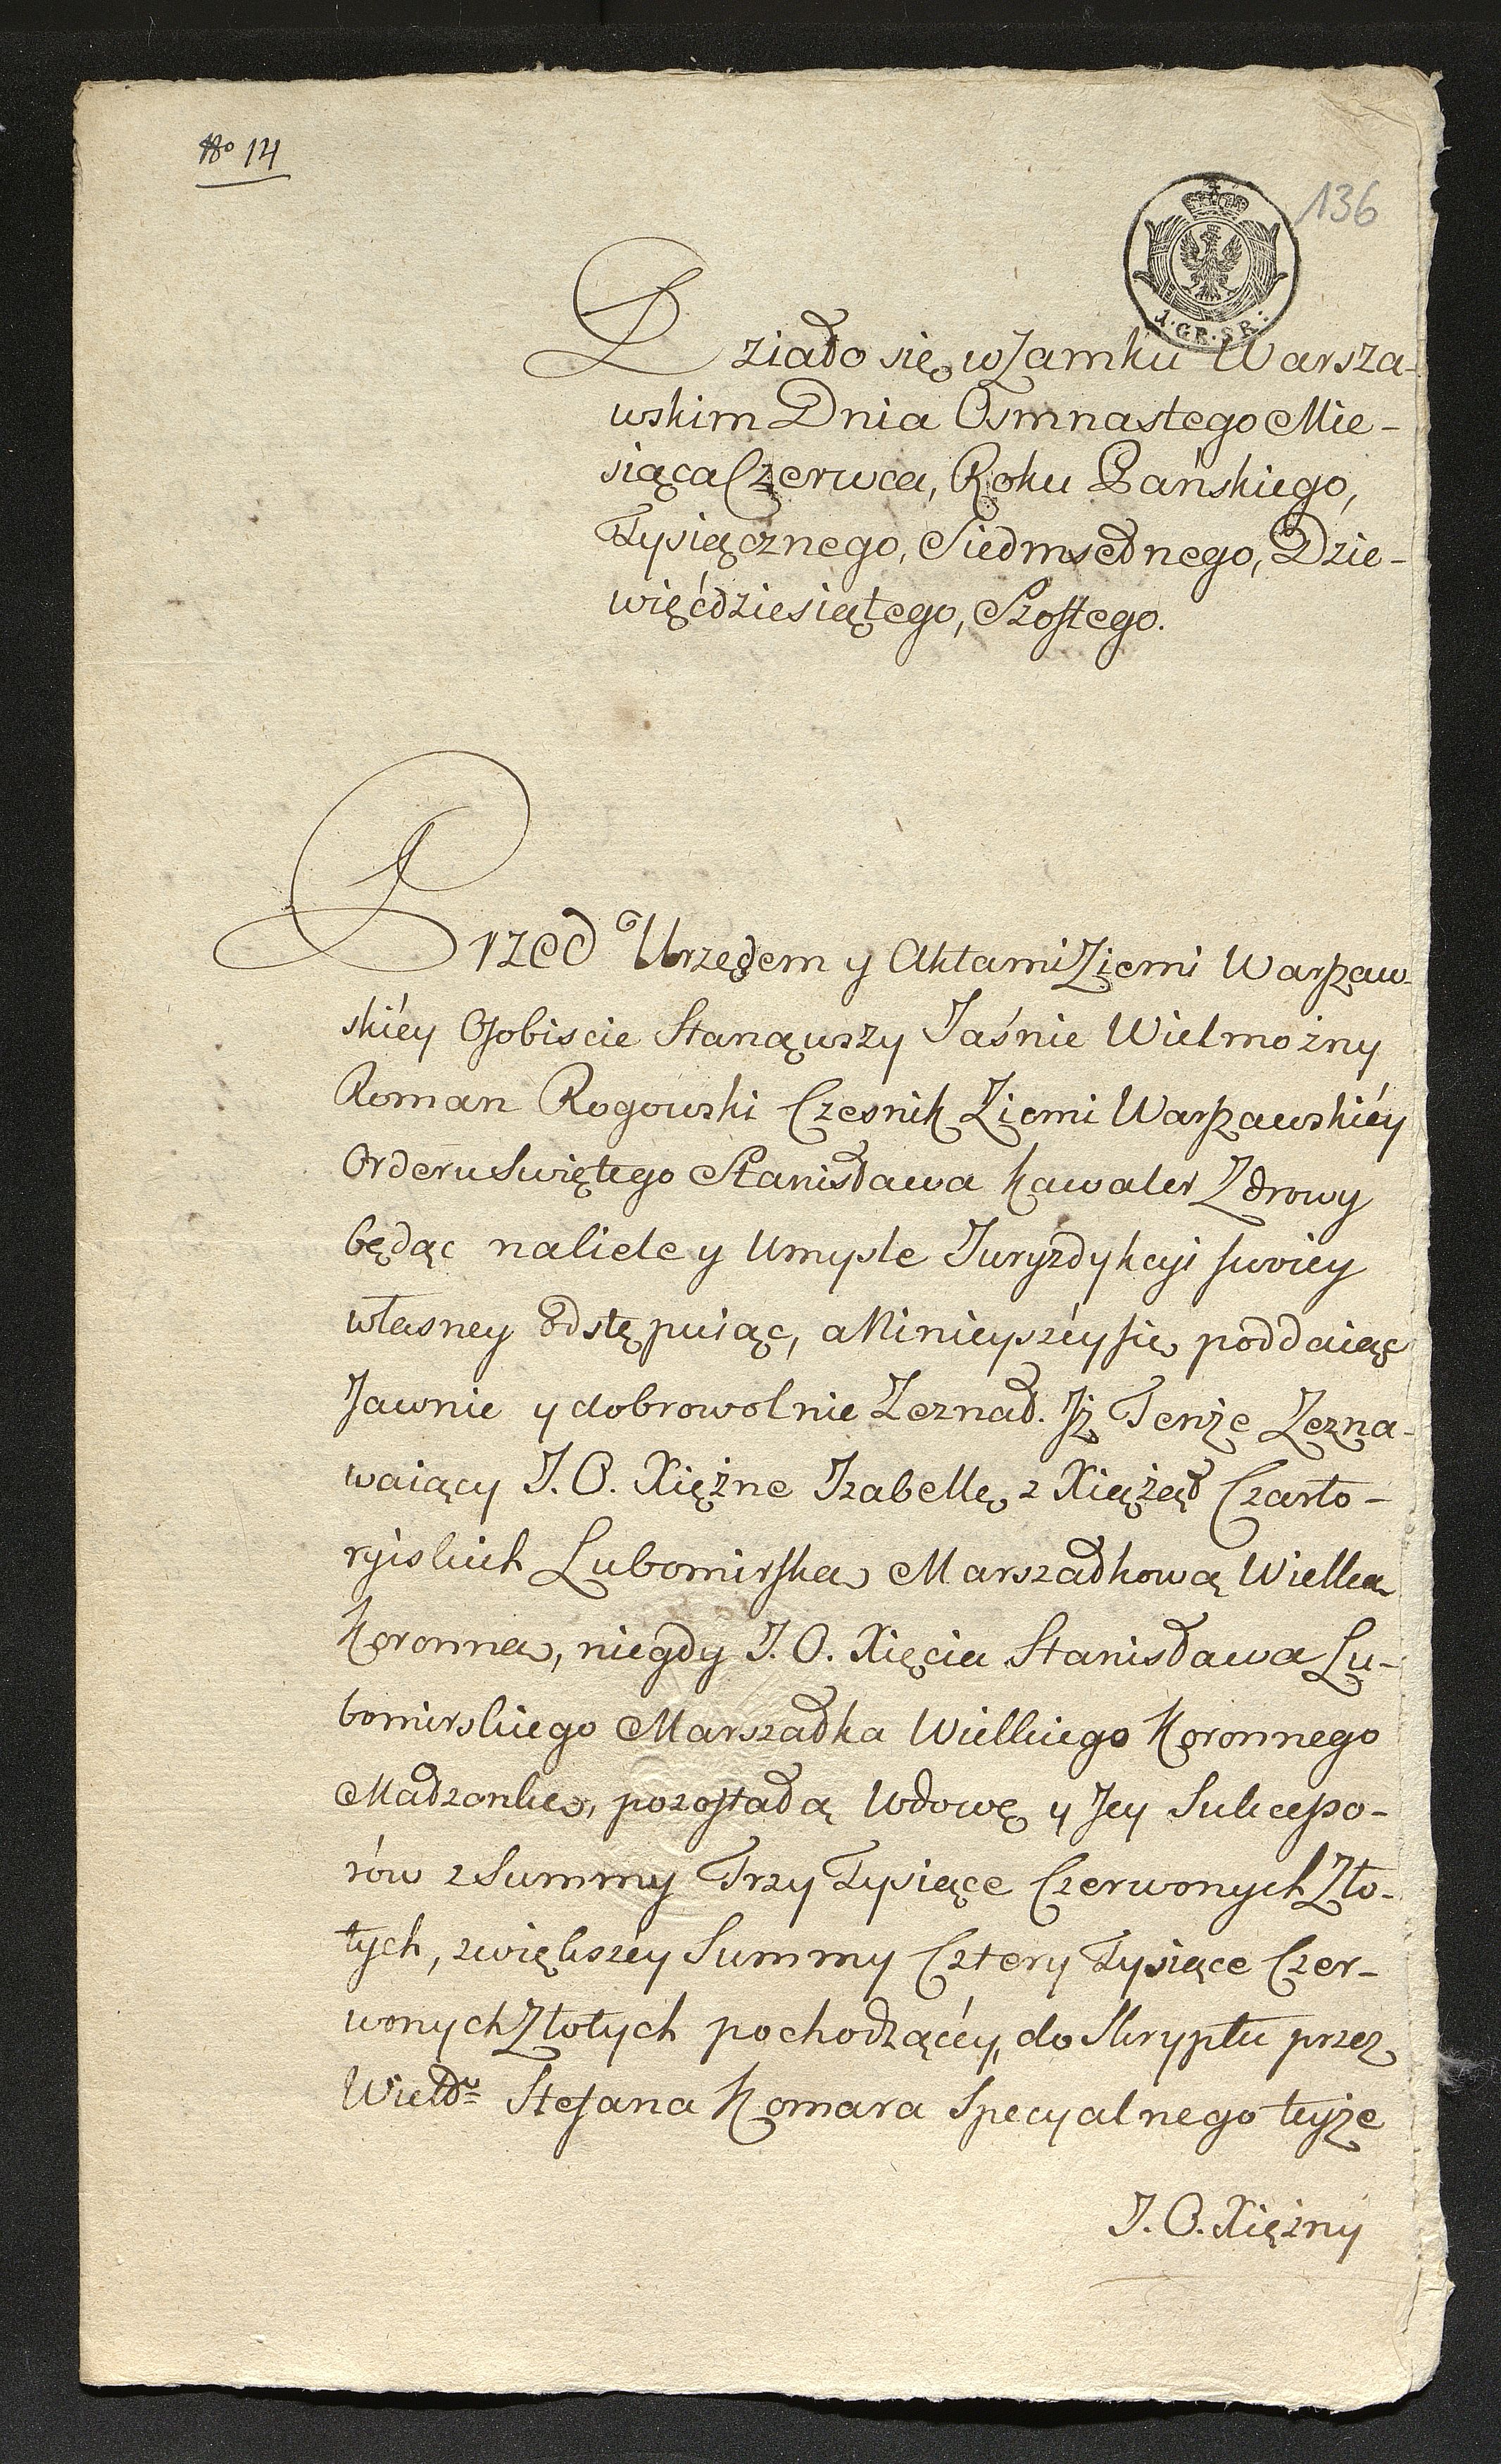 No 14
136
1. GR. SR:
Działo się w Zamku Warsza-
wskim Dnia Osmnastego Mie-
siąca Czerwca, Roku Pańskiego,
Tysiącznego, Siedmsetnego, Dzie-
więćdziesiątego, Szostego.
Przed Urzędem y Aktami Ziemi Warszaw-
skiéy Osobiscie Stanąwszy Jaśnie Wielmożny
Roman Rogowski Czesnik Ziemi Warszawskiéy
Orderu Swiętego Stanisława Kawaler Zdrowy
będąc na liele y Umysle Juryzdykcyi swoiey
własney odstępuiąc, a Ninieyszéy się poddaiąc
Jawnie y dobrowolnie Zeznał. Iż Tenże Zezna-
waiący J. O. Xiężne Izabellę z Xiążąt Czarto-
ryiskich Lubomirską Marszałkową Wielką
Koronną, niegdy J. O. Xięcia Stanisława Lu-
bomirskiego Marszałka Wielkiego Koronnego
Małżonkę, pozostałą Wdowę y Jey Sukcesso-
rów z Summy Trzy Tysiące Czerwonych Zło-
tych, zwiększey Summy Cztery Tysiące Czer-
wonych Złotych pochodzącéy, do Skryptu przez
Stefana Komara Specyalnego teyże
J. O. Xiężny